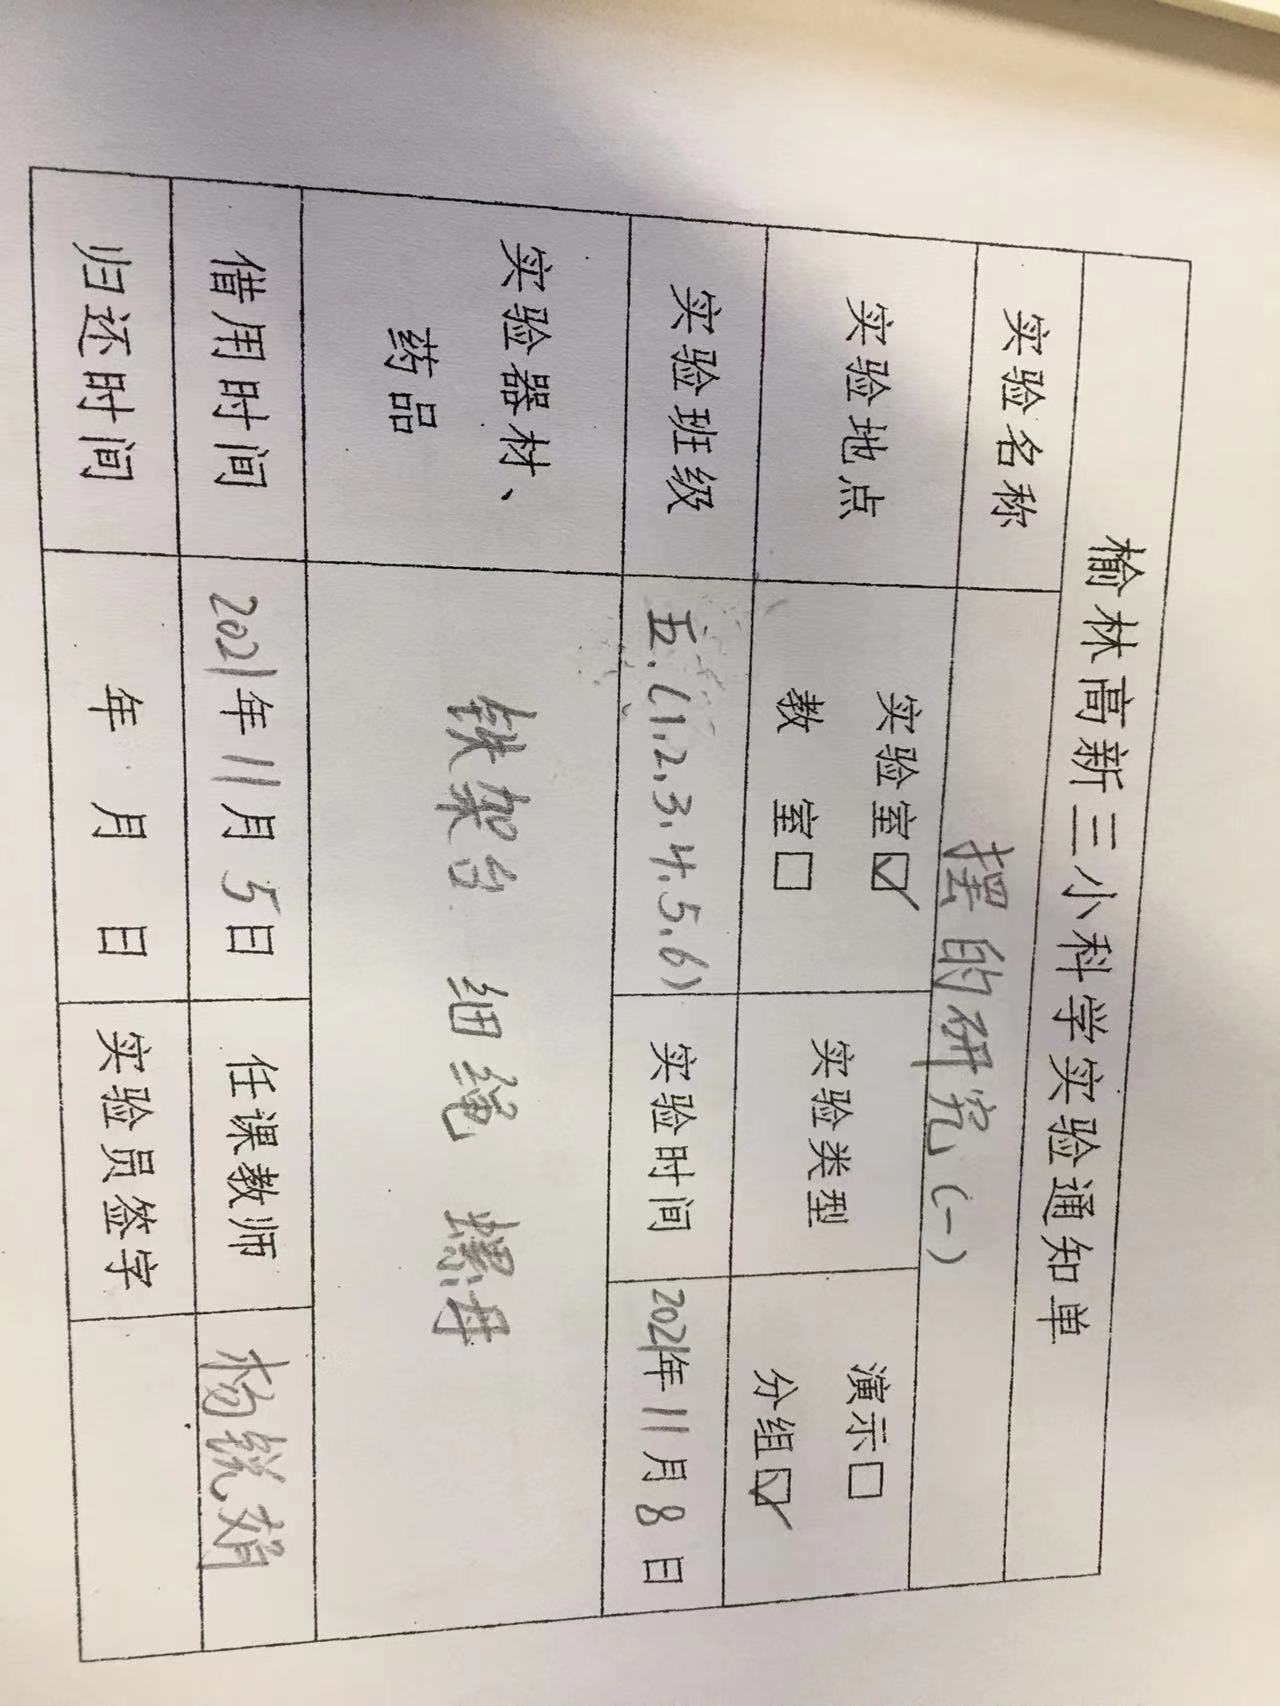 榆林高新三小科学实验通知单
实验名称 摆的研究(一)
实验地点 实验室☑ 实验类型 演示□
教 室□ 分组☑
实验班级 五.(1.2.3.4.5.6) 实验时间 2021年11月8日
实验器材、
药品 铁架台 细绳 螺母
借用时间 2021年11月5日 任课教师 杨锐娟
归还时间 年 月 日 实验员签字